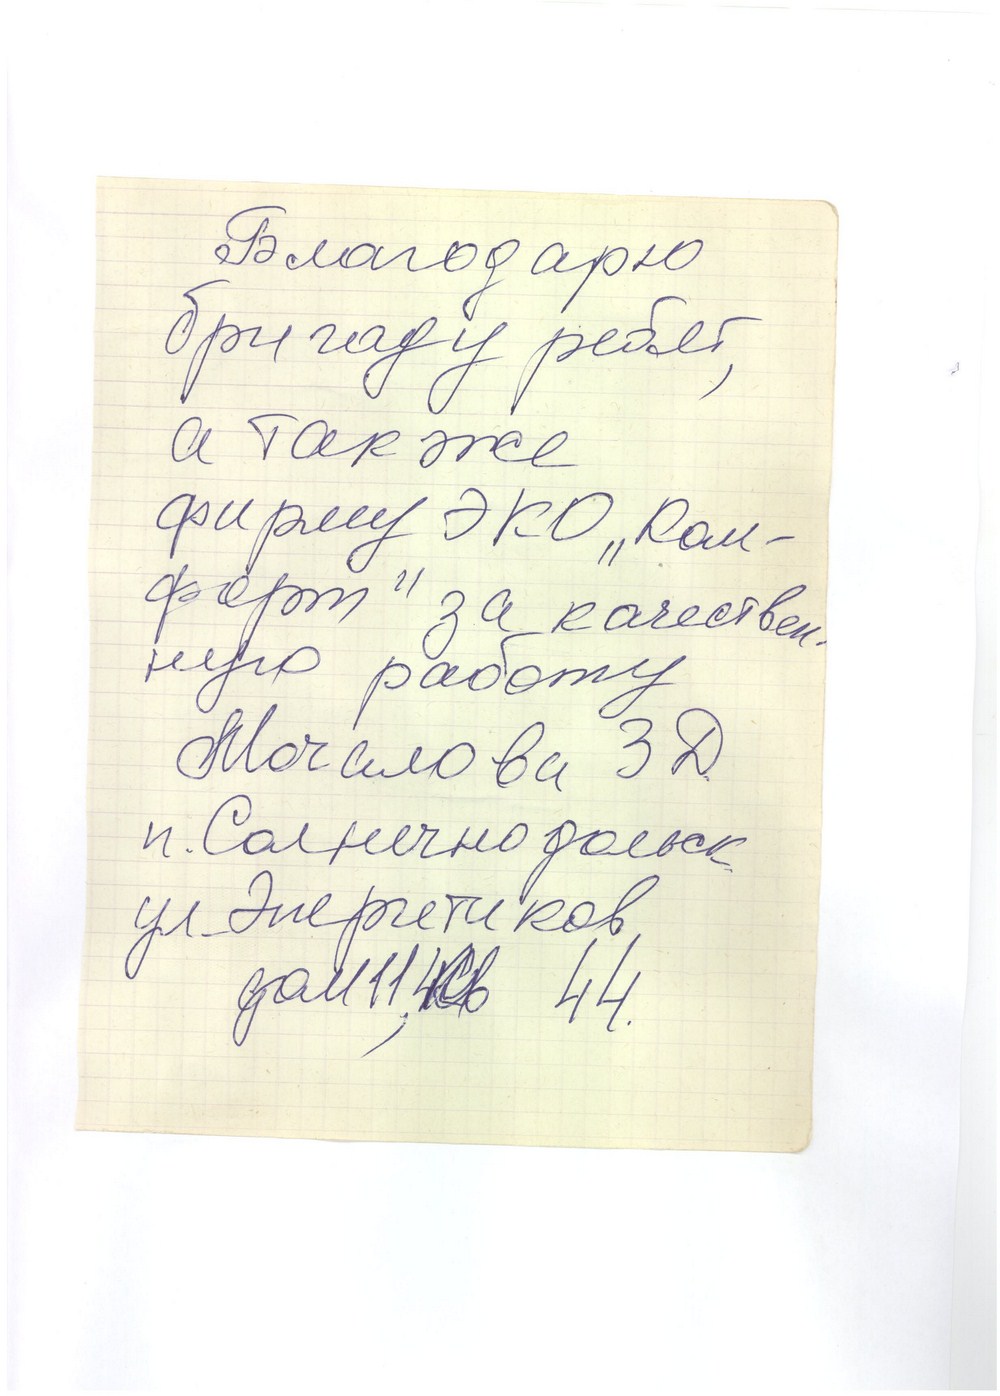 Благодарю
бригаду ребят,
а также
фирму ЭКО „Ком-
форт" за качествен-
ную работу
Мочалова З Д.
п. Солнечнодольск
ул. Энергетиков
дом 11, кв 44.